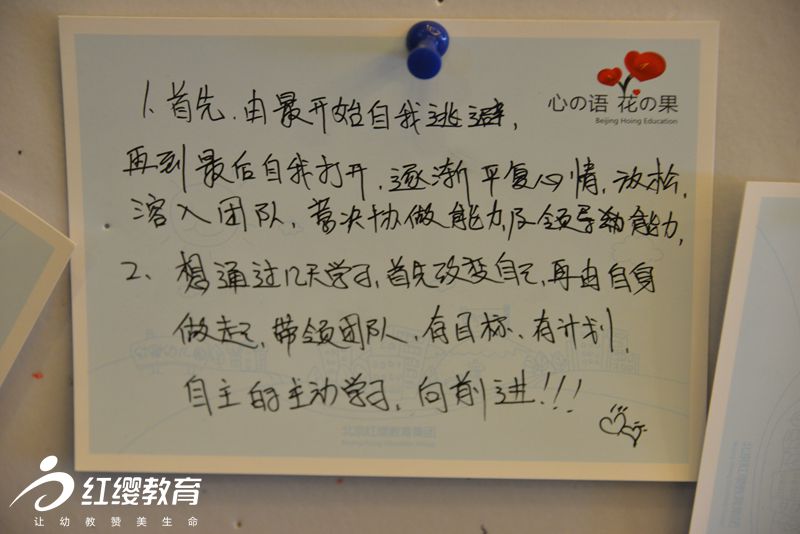 心の语 花の果
Beijing Hoing Education
1、首先、由最开始自我逃避,
再到最后自我打开,逐渐平复心情,放松,
溶入团队,尝决协做能力及领导动能力,
2、想通过几天学习,首先改变自己,再由自身
做起,带领团队,有目标、有计划,
自主的主动学习,向前进!!!
北京红缨教育集团
Beijing Hoing Education Group
红缨教育
让幼教赞美生命